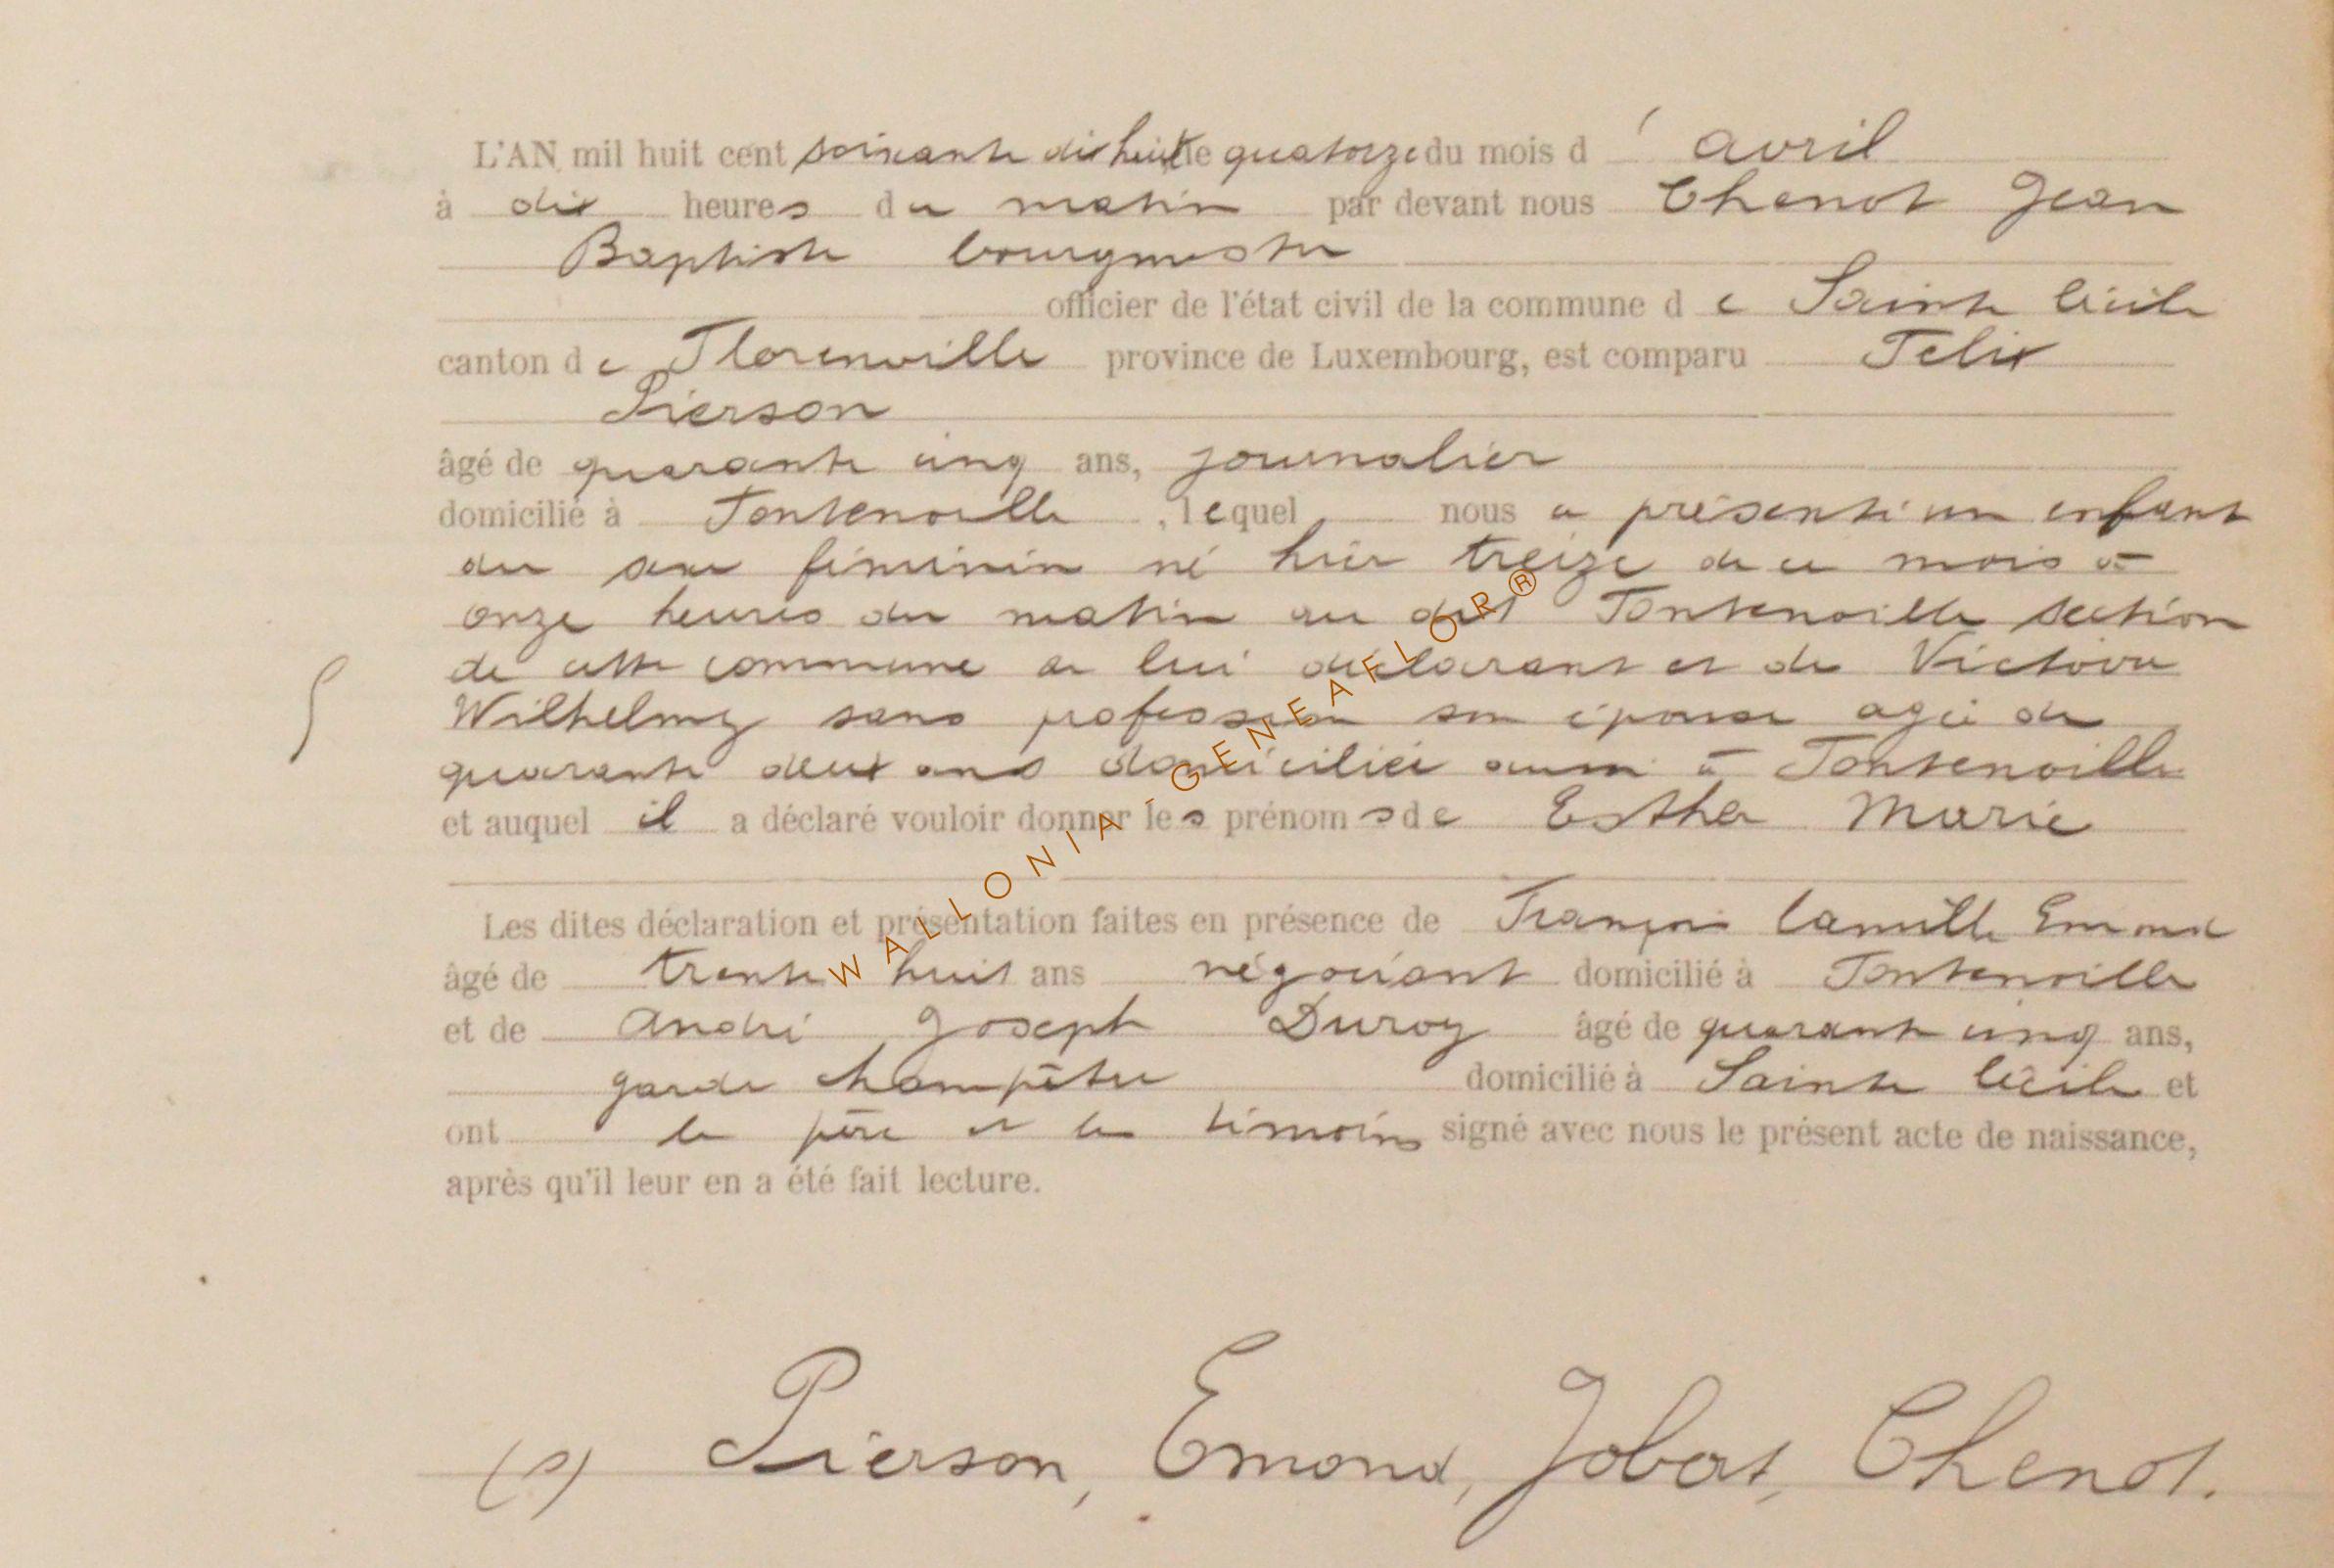 L'AN mil huit cent soixante dix huit le quatorze du mois d' avril
à dix heures du matin par devant nous Chenot Jean
Baptiste bourgmestre
officier de l'état civil de la commune de Sainte Cécile
canton de Florenville province de Luxembourg, est comparu Felix
Pierson
âgé de quarante cinq ans, journalier
domicilié à Fontenoille, lequel nous a présenté un enfant
du sexe féminin né hier treize de ce mois à
onze heures du matin au dit Fontenoille section
de cette commune de lui déclarant et de Victoire
Wilhelmy sans profession son épouse agée de
quarante deux ans domiciliée aussi à Fontenoille
et auquel il a déclaré vouloir donner les prénoms de Esther Marie
Les dites déclaration et présentation faites en présence de François Camille Emond
âgé de trente huit ans négociant domicilié à Fontenoille
et de André Joseph Duroy âgé de quarante cinq ans,
garde champêtre domicilié à Sainte Cécile et
ont le père et les témoins signé avec nous le présent acte de naissance,
après qu'il leur en a été fait lecture.
(s) Pierson, Emond, Jobert, Chenot.
WALLONIA-GENEAFLOR®